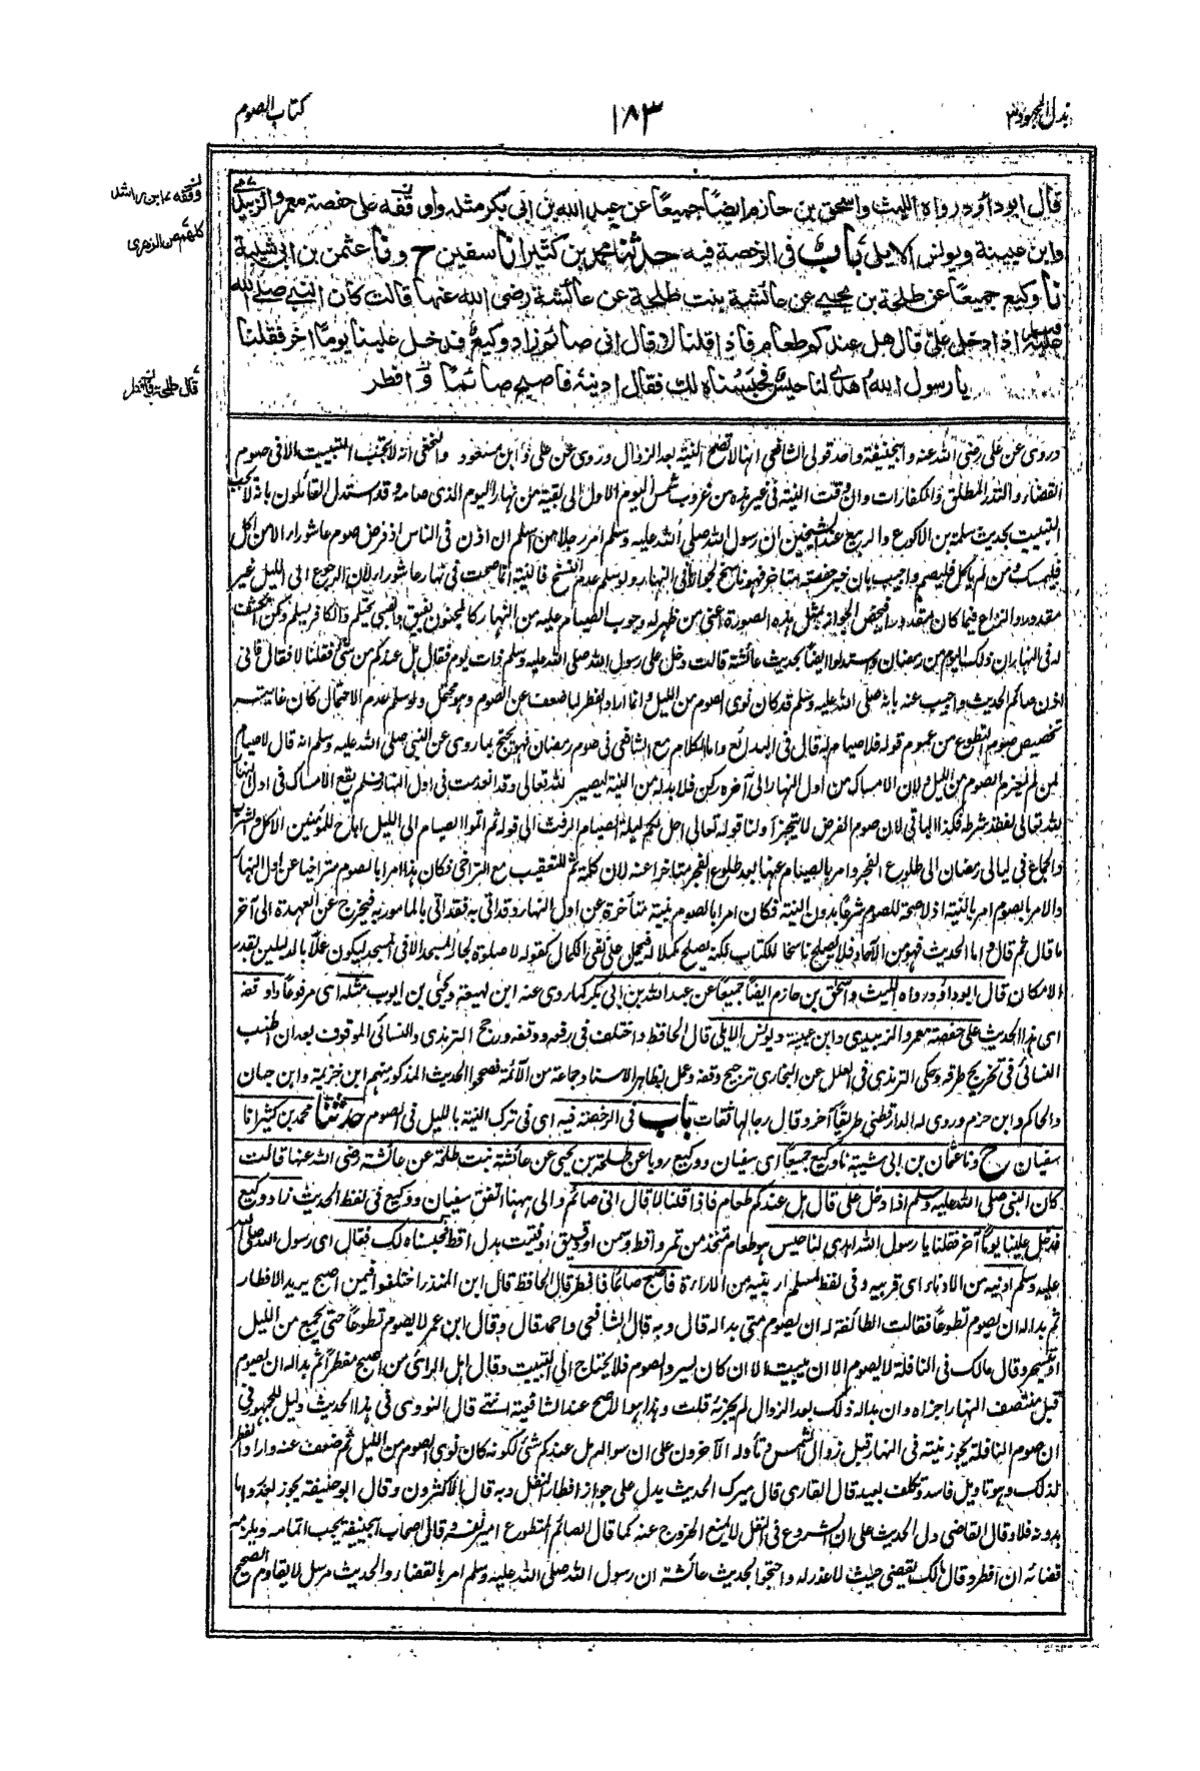 بذل المجهود ٣
١٨٣
كتاب الصوم
قال ابو داؤد رواه الليث واسحق بن حازم ايضا جميعا عن عبد الله بن ابى بكر مثله واوقفه على حفصة معمر والزبيدى
وابن عيينة ويونس الايلى باب فى الرخصة فيه حدثنا محمد بن كثير انا سفين ح ونا عثمن بن ابى شيبة
نا وكيع جميعا عن طلحة بن يحيى عن عائشة بنت طلحة عن عائشة رضى الله عنها قالت كان النبى صلى الله
عليه وسلم اذا دخل على قال هل عندكم طعام فاذا قلنا لا قال انى صائم زاد وكيع فدخل علينا يوما اخر فقلنا
يا رسول الله اهدى لنا حيس فحبسناه لك فقال ادنيه فاصبح صائما وافطر
كلهم عن الزهرى
قال طلحة
وروى عن على رضى الله عنه وابى حنيفة واحد قولى الشافعى انها لا تصح النية بعد الزوال وروى عن على وابن مسعود والنخعى انه لا يجب التبييت الا فى صوم
القضاء والنذر المطلق والكفارات وان وقت النية فى غير هذه من غروب شمس اليوم الاول الى بقية من نهار اليوم الذى صامه وقد استدل القائلون بانه لا يجب
التبييت بحديث سلمة بن الاكوع والربيع عند الشيخين ان رسول الله صلى الله عليه وسلم امر رجلا من اسلم ان اذن فى الناس اذ فرض صوم عاشوراء الا من اكل
فليمسك ومن لم ياكل فليصم واجيب بان خبر حفصة متاخر فهو ناسخ لجوازها فى النهار ولو سلم عدم النسخ فالنية انما صحت فى نهار عاشوراء لان الرجوع الى الليل غير
مقدور والنزاع فيما كان مقدورا فيخص الجواز بمثل هذه الصورة اعنى من ظهر له وجوب الصيام عليه من النهار كالمجنون يفيق والصبى يحتلم والكافر يسلم وكمن انكشف
له فى النهار ان ذلك اليوم من رمضان واستدلوا ايضا بحديث عائشة قالت دخل على رسول الله صلى الله عليه وسلم ذات يوم فقال هل عندكم من شئ فقلنا لا فقال فانى
اذن صائم الحديث واجيب عنه بانه صلى الله عليه وسلم قد كان نوى الصوم من الليل وانما اراد الفطر لما ضعف عن الصوم وهو محتمل ولو سلم عدم الاحتمال كان غايته
تخصيص صوم التطوع من عموم قوله فلا صيام له قال فى البدائع واما الكلام مع الشافعى فى صوم رمضان فهو يحتج بما روى عن النبى صلى الله عليه وسلم انه قال لا صيام
لمن لم يعزم الصوم من الليل ولان الامساك من اول النهار الى آخره ركن فلا بد له من النية ليصير لله تعالى وقد انعدمت فى اول النهار فلم يقع الامساك فى اول النهار
لله تعالى لفقد شرطه فكذا الباقى لان صوم الفرض لا يتجزأ ولنا قوله تعالى احل لكم ليلة الصيام الرفث الى قوله ثم اتموا الصيام الى الليل اباح للمؤمنين الاكل والشرب
والجماع فى ليالى رمضان الى طلوع الفجر وامر بالصيام عنها بعد طلوع الفجر متاخرا عنه لان كلمة ثم للتعقيب مع التراخى فكان هذا امرا بالصوم متراخيا عن اول النهار
والامر بالصوم امر بالنية اذ لا صحة للصوم شرعا بدون النية فكان امرا بالصوم بنية متأخرة عن اول النهار وقد اتى به فقد اتى بالمامور به فيخرج عن العهدة الى آخر
ما قال ثم قال واما الحديث فهو من الآحاد فلا يصلح ناسخا للكتاب لكنه يصلح مكملا له فيحمل على نفى الكمال كقوله لا صلوة لجار المسجد الا فى المسجد ليكون عملا بالدليلين بقدر
الامكان قال ابو داؤد رواه الليث واسحق بن حازم ايضا جميعا عن عبد الله بن ابى بكر كما روى عنه ابن لهيعة ويحيى بن ايوب مثله اى مرفوعا واوقفه
اى هذا الحديث على حفصة معمر والزبيدى وابن عيينة ويونس الايلى قال الحافظ واختلف فى رفعه ووقفه ورجح الترمذى والنسائى الموقوف بعد ان اطنب
النسائى فى تخريج طرقه وحكى الترمذى فى العلل عن البخارى ترجيح وقفه وعمل بظاهر الاسناد جماعة من الائمة فصححوا الحديث المذكور منهم ابن خزيمة وابن حبان
والحاكم وابن حزم وروى له الدارقطنى طريقا آخر وقال رجالها ثقات باب فى الرخصة فيه اى فى ترك النية بالليل فى الصوم حدثنا محمد بن كثير انا
سفيان ح ونا عثمان بن ابى شيبة نا وكيع جميعا اى سفيان ووكيع رويا عن طلحة بن يحيى عن عائشة بنت طلحة عن عائشة رضى الله عنها قالت
كان النبى صلى الله عليه وسلم اذا دخل على قال هل عندكم طعام فاذا قلنا لا قال انى صائم والى ههنا اتفق سفيان ووكيع فى لفظ الحديث زاد وكيع
فدخل علينا يوما آخر فقلنا يا رسول الله اهدى لنا حيس هو طعام متخذ من تمر واقط وسمن او دقيق او فتيت بدل اقط فحبسناه لك فقال اى رسول الله صلى الله
عليه وسلم ادنيه من الادناء اى قربيه وفى لفظ لمسلم ارينيه من الاراءة فاصبح صائما فافطر قال الحافظ قال ابن المنذر اختلفوا فيمن اصبح يريد الافطار
ثم بدا له ان يصوم تطوعا فقالت طائفة له ان يصوم متى بدا له قال وبه قال الشافعى واحمد قال وقال ابن عمر لا يصوم تطوعا حتى يجمع من الليل
او يتسحر وقال مالك فى النافلة لا يصوم الا ان يبيت الا ان كان يسرد الصوم فلا يحتاج الى التبييت وقال اهل الرائ من اصبح مفطرا ثم بدا له ان يصوم
قبل منتصف النهار اجزاه وان بدا له ذلك بعد الزوال لم يجزئه قلت وهذا هو الاصح عند الشافعية انتهى قال النووى فى هذا الحديث دليل للجمهور فى
ان صوم النافلة يجوز بنيته فى النهار قبل زوال الشمس وتأوله الآخرون على ان سواله هل عندكم شئ لكونه كان نوى الصوم من الليل ثم ضعف عنه واراد الفطر
لذلك وهو تاويل فاسد وتكلف بعيد قال القارى قال ميرك الحديث يدل على جواز افطار النفل وبه قال الاكثرون وقال ابو حنيفة يجوز لعذر واما
بدونه فلا وقال القاضى دل الحديث على ان الشروع فى النفل لا يمنع الخروج عنه كما قال الصائم المتطوع امير نفسه وقال اصحاب ابى حنيفة يجب اتمامه ويلزمه
قضائه ان افطر وقال مالك يقضى حيث لا عذر له واحتجوا بحديث عائشة ان رسول الله صلى الله عليه وسلم امرها بالقضاء والحديث مرسل لا يقاوم الصحيح